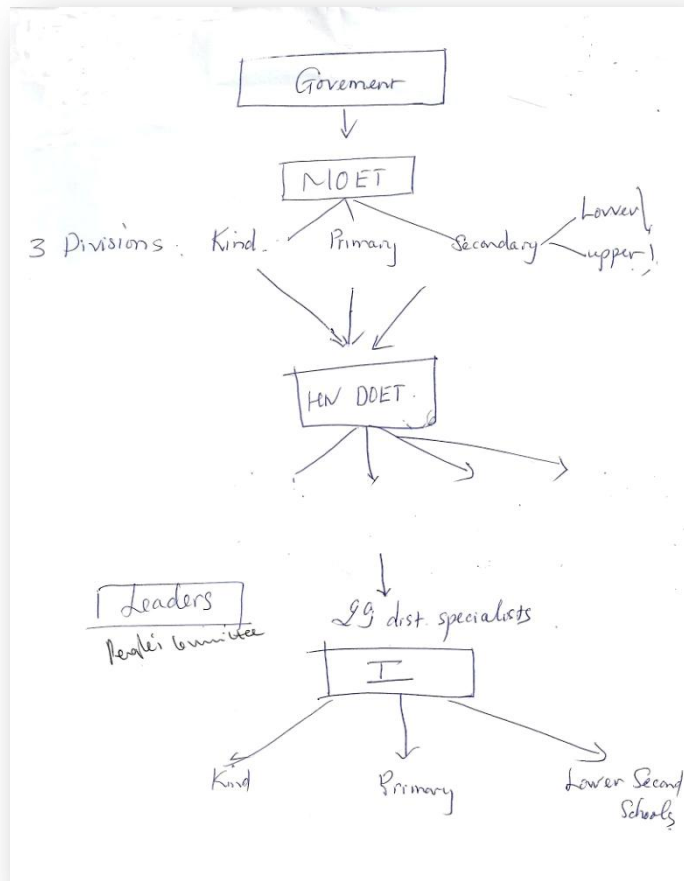 Goverment
MOET
3 Divisions: Kind. Primary Secondary Lower
upper
HN DOET.
Leaders
People's Committee
29 dist. specialists
I
Kind Primary Lower Second
Schools